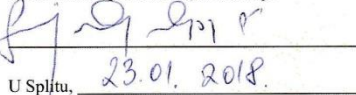 U Splitu, 23.01. 2018.